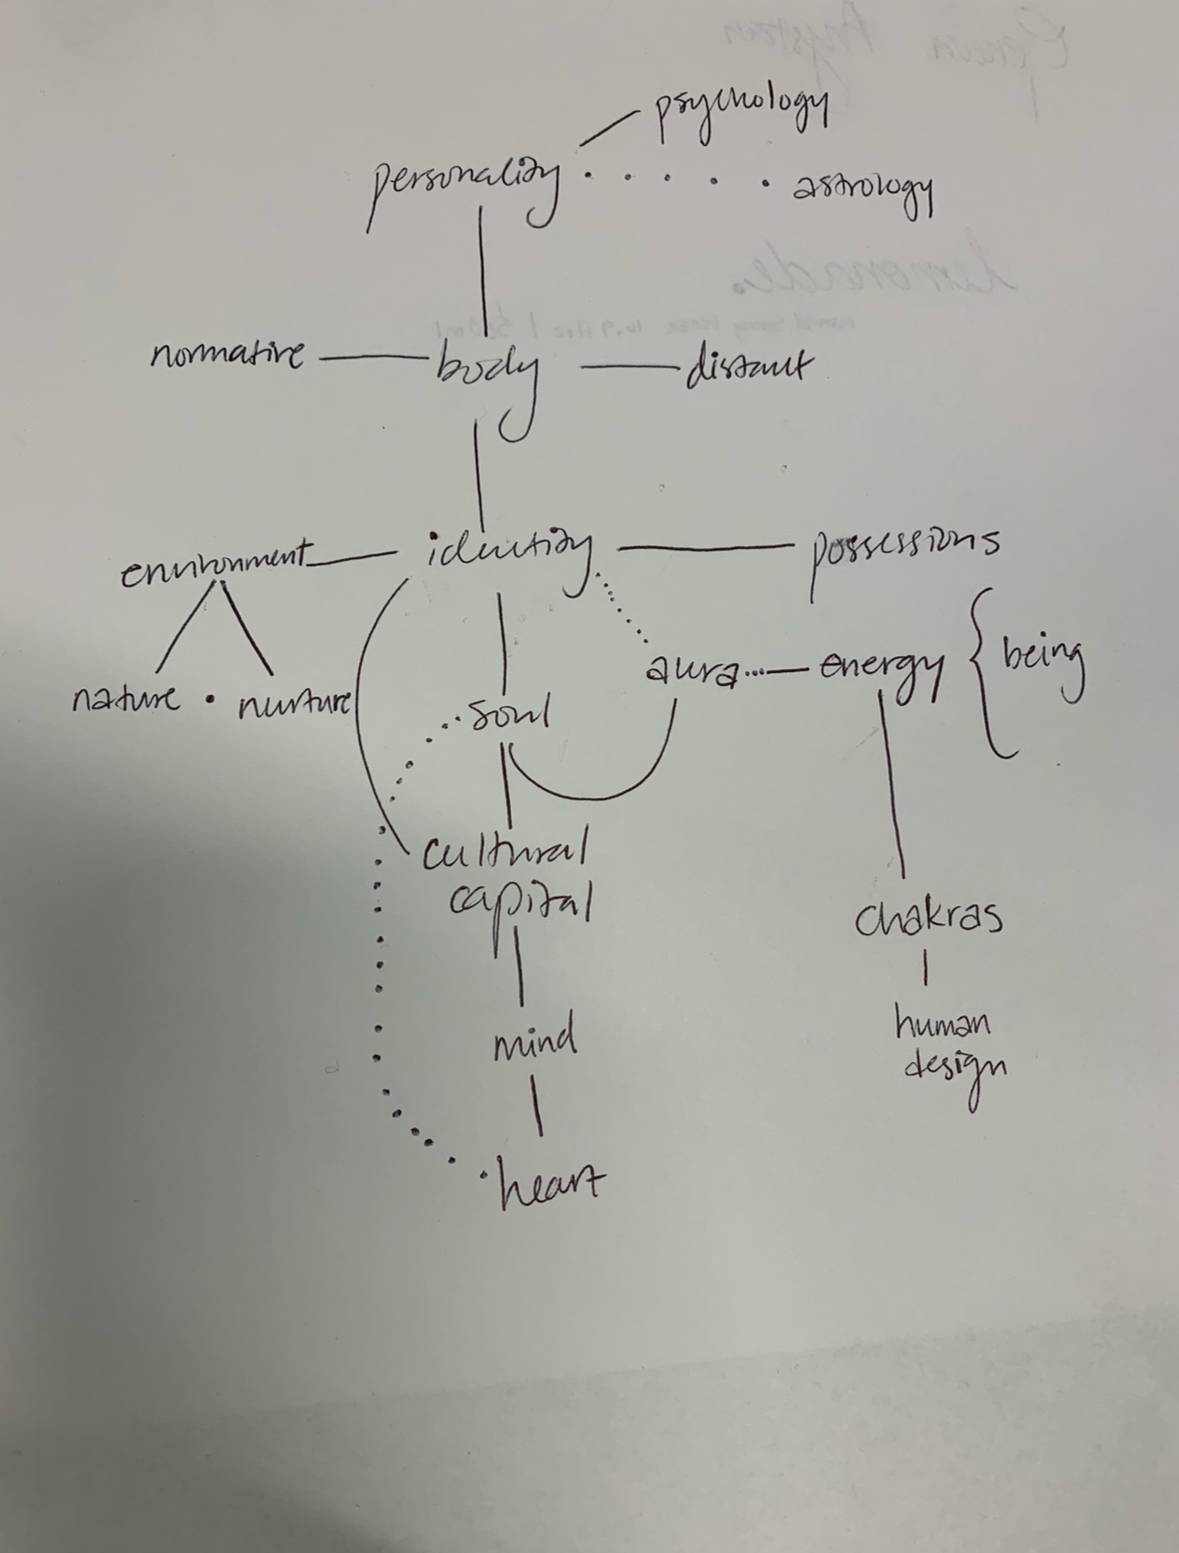 psychology
personality
astrology
normative
body
distant
environment
identity
possessions
nature • nurture
soul
aura
energy
being
cultural
capital
chakras
mind
human
design
heart